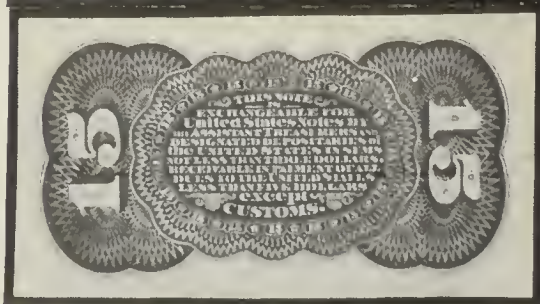 15
THIS NOTE
IS
EXCHANGEABLE FOR
United States Notes BY
the ASSISTANT TREASURERS and
DESIGNATED DEPOSITARIES of
the UNITED STATES IN SUMS
NOT LESS THAN THREE DOLLARS.
RECEIVABLE IN PAYMENT OF ALL
DUES TO THE UNITED STATES
LESS THAN FIVE DOLLARS
except
CUSTOMS.
15